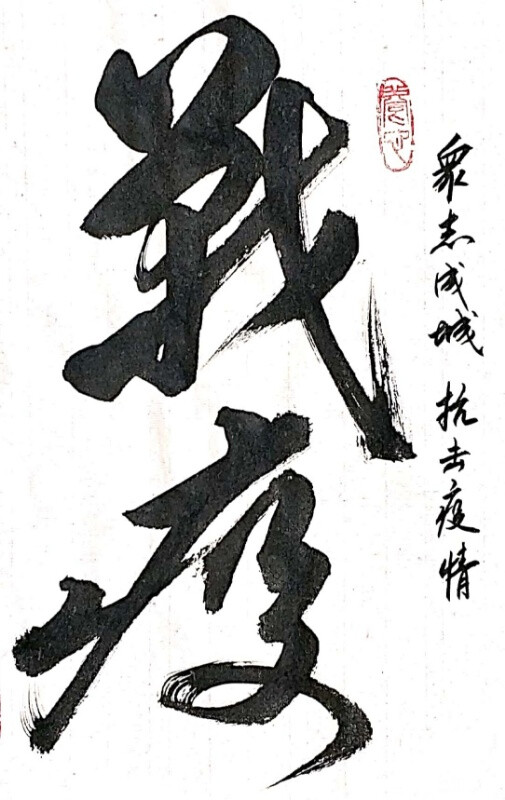 戰疫
衆志成城 抗击疫情